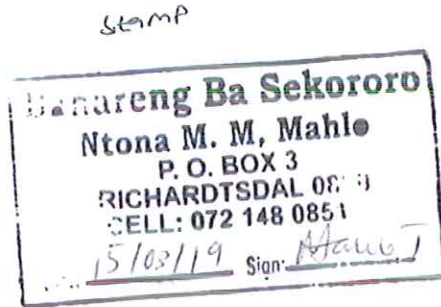 stamp
Banareng Ba Sekororo
Ntona M. M, Mahlo
P. O. BOX 3
RICHARDTSDAL
CELL: 072 148 0851
15/03/19 Sign: